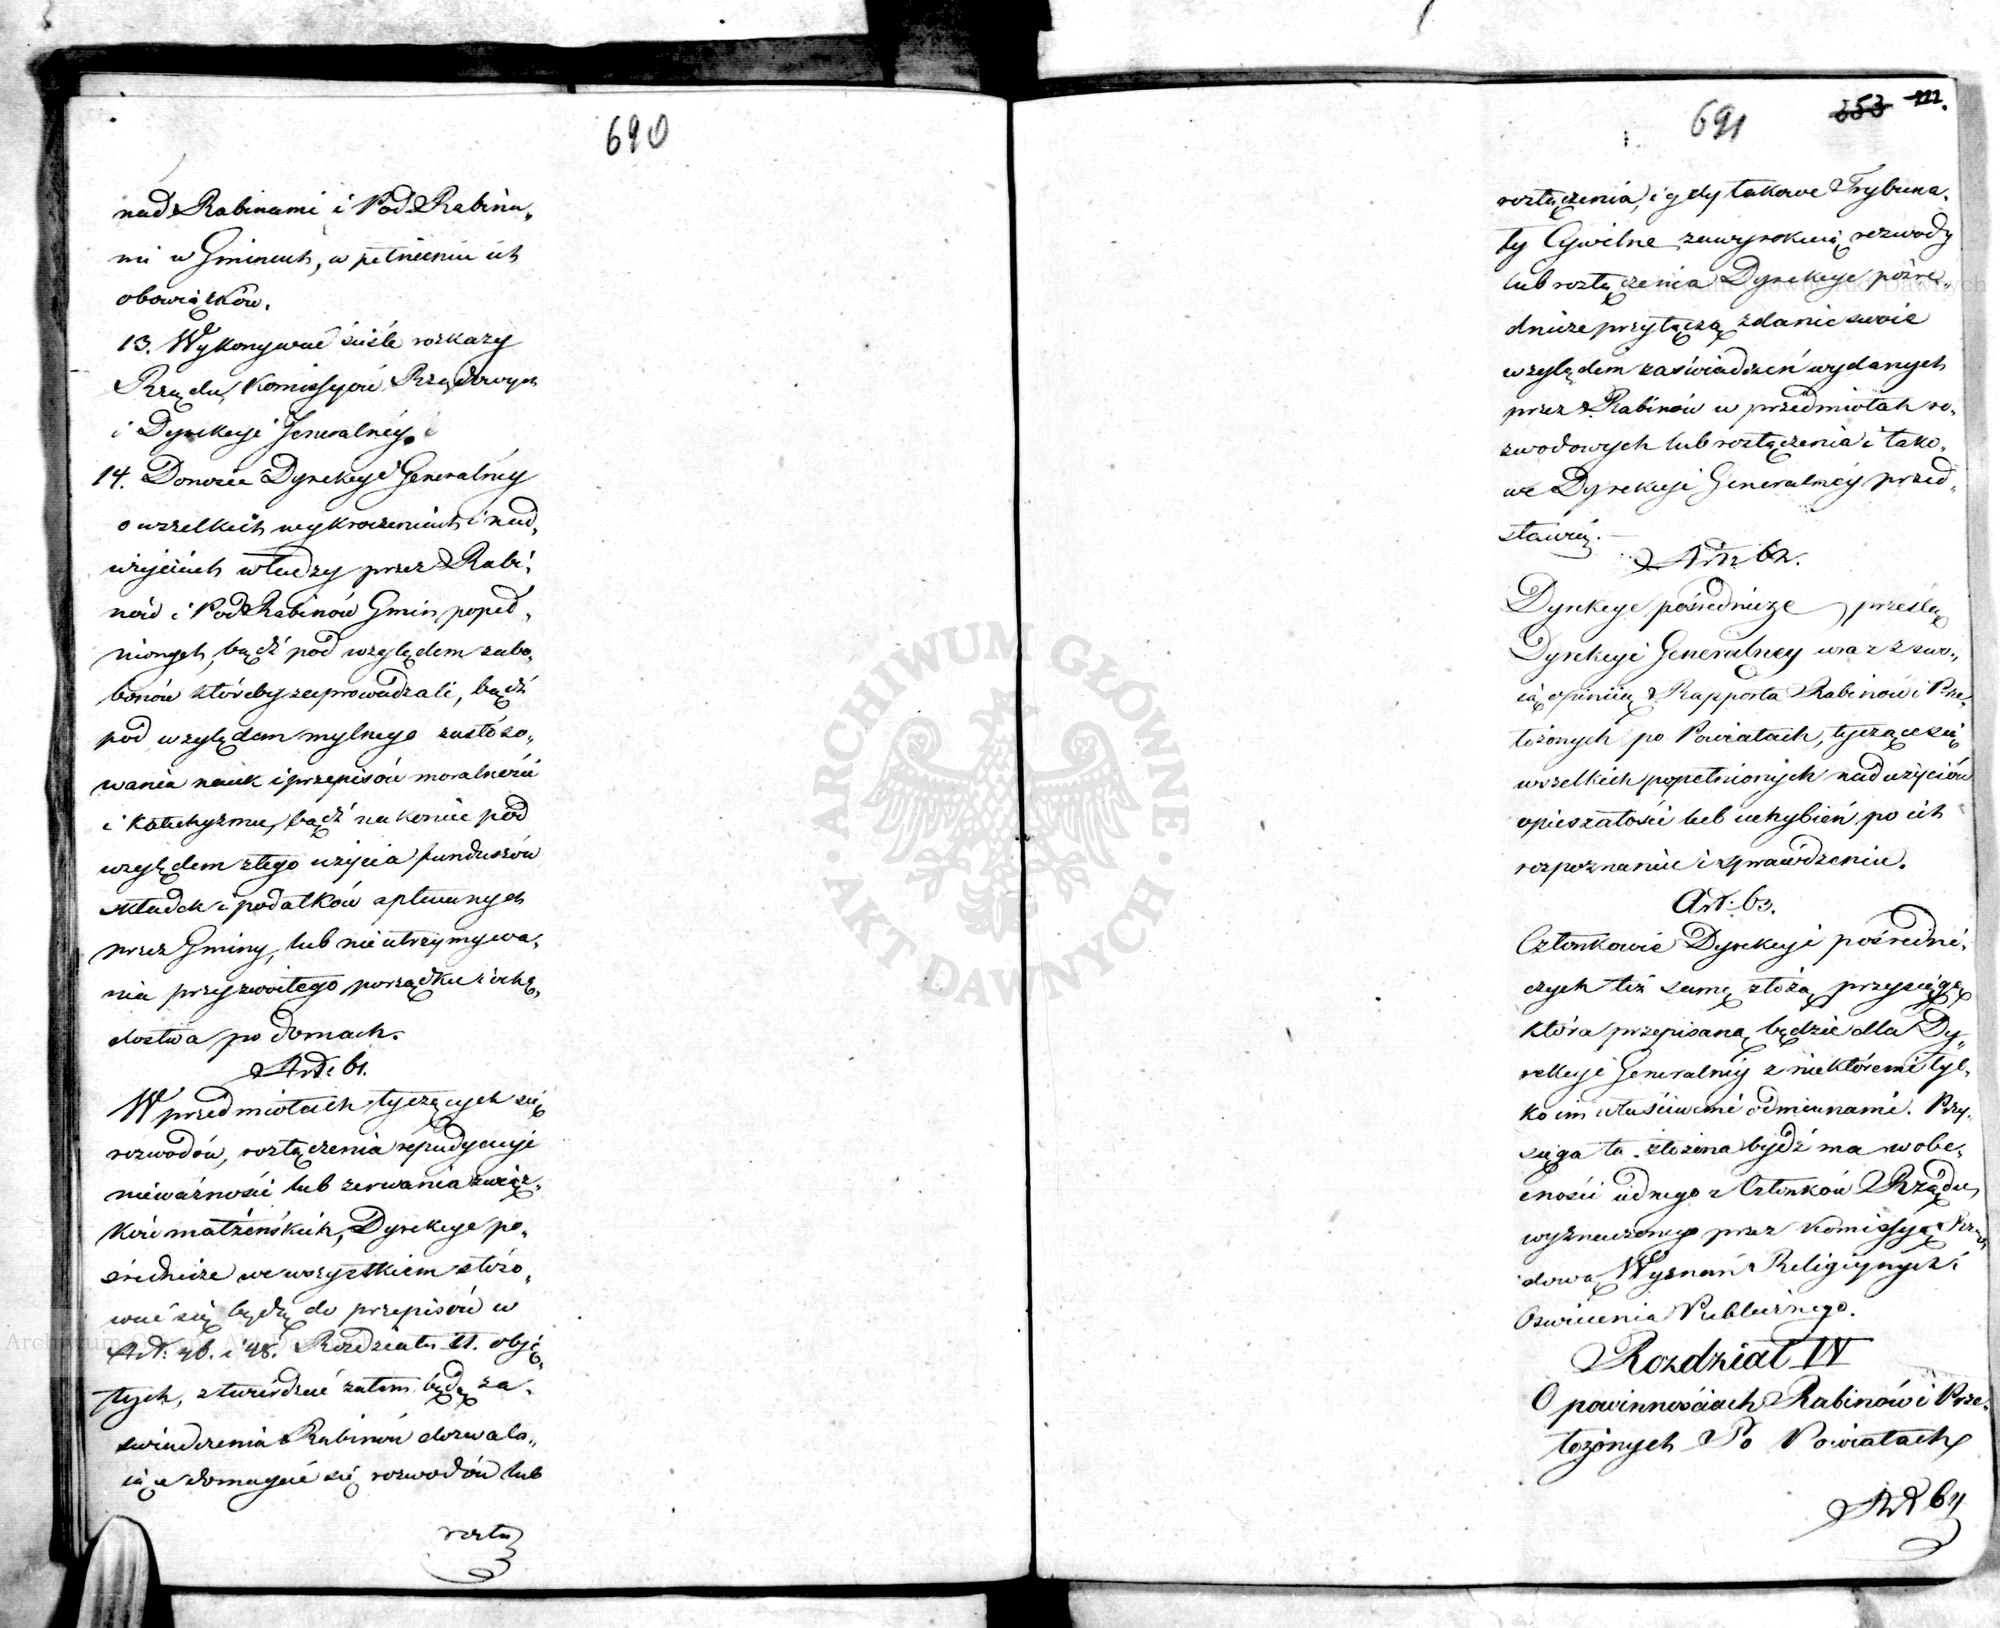 690
nad Rabinami i Pod Rabina„
mi w Gminach, w pełnieniu ich
obowiązków.
13. Wykonywać ściśle rozkazy
Rządu, Komissyów Rządowych
i Dyrekcyi Generalnéy.
14. Donosić Dyrekcyi Generalnéy
o wszelkich wykroczeniach i nad„
użyciach władzy przez Rabi„
nów i Pod Rabinów Gmin popeł„
nionych, bądź pod względem zabo„
bonów któreby zaprowadzali, bądź
pod względem mylnego zastóso„
wania nauk i przepisów moralności
i Katechyzmu, bądź nakoniec pod
względem złego użycia funduszów
składek i podatków opłacanych
przez Gminy, lub nieutrzymywa„
nia przyzwoitego porządku i ochę„
dostwa po domach.
Art: 61.
W przedmiotach tyczących się
rozwodów, rozłączenia repudyacyi
nieważności lub zerwania związ„
ków małżeńskich, Dyrekcye po„
średnicze we wszystkiem stóso„
wać się będą do przepisów w
Art: 46. i 48. Rozdziału II. obję„
tych, stwierdzać zatem będą za„
świadczenia Rabinów dozwala„
iące domagać się rozwodów lub
rozłą
691
353
rozłączenia, i gdy takowe Trybuna„
ły Cywilne zawyrokuią rozwody
lub rozłączenia Dyrekcye pośre„
dnicze przyłączą zdanie swoie
względem zaświadczeń wydanych
przez Rabinów w przedmiotah ro„
zwodowych lub rozłączenia i tako„
we Dyrekcyi Generalnéy przed„
stawią.
Art: 62.
Dyrekcye pośrednicze prześlą
Dyrekcyi Generalney wraz z swo„
ią opiniią Rapporta Rabinów i Prze„
łożonych po Powiatach, tyczące się
wszelkich popełnionych nadużyciów
opieszałości lub uchybień po ich
rozpoznaniu i sprawdzeniu.
Art: 63.
Członkowie Dyrekcyi pośredni„
czych też samę złożą przysięgę
która przepisaną będzie dla Dy„
rekcyi Generalnéy z niektóremi tyl„
ko im właściwemi odmianami. Przy„
sięga ta złożona bydź ma w obe„
cności iednego z Członków Rządu,
wyznaczonego przez Komissyą Rzą„
dową Wyznań Religiynych i
Oświecenia Publicznego.
Rozdział IV
O powinnościach Rabinów i Prze„
łożonych Po Powiatach
Art 64